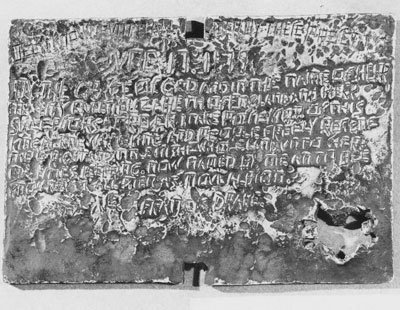 BEE IT KNOWNE VNTO ALL MEN BY THESE PRESENTS
IVNE 17 1579
BY THE GRACE OF GOD AND IN THE NAME OF HERR
MAIESTY QVEEN ELIZABETH OF ENGLAND AND HERR
SVCCESSORS FOREVER I TAKE POSSESSION OF THIS
KINGDOME WHOSE KING AND PEOPLE FREELY RESIGNE
THEIR RIGHT AND TITLE IN THE WHOLE LAND VNTO HERR
MAIESTIES KEEPEING NOW NAMED BY ME AN TO BEE
KNOWNE VNTO ALL MEN AS NOVA ALBION
FRANCIS DRAKE